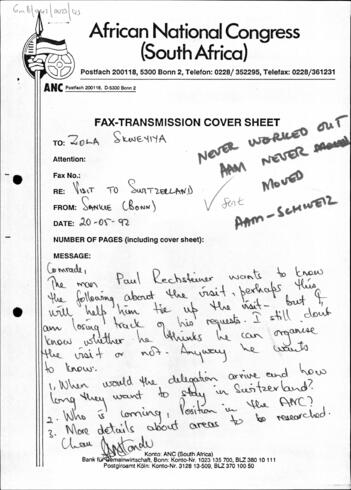 African National Congress
(South Africa)
Postfach 200118, 5300 Bonn 2, Telefon: 0228/ 352295, Telefax: 0228/361231
ANC Postfach 200118, D-5300 Bonn 2
FAX-TRANSMISSION COVER SHEET
TO: ZOLA SKWEYIYA
NEVER WORKED OUT
AAM NEVER
MOVED
Attention:
Fax No.:
Sent
RE: VISIT TO SWITZERLAND
AAM-SCHWEIZ
FROM: SANKIE (BONN)
DATE: 20-05-92
NUMBER OF PAGES (including cover sheet):
MESSAGE:
Comrade,
The man Paul Rechsteiner wants to know
the following about the visit, perhaps this
will help him tie up the visit - but I
am losing track of his requests. I still dont
know whether he thinks he can organise
the visit or not. Anyway he wants
to know.
1. When would the delegation arrive and how
long they want to stay in Switzerland?
2. Who is coming, Position in the ANC?
3. More details about areas to be researched.
Ciao
Konto: ANC (South Africa)
Bank für Gemeinwirtschaft, Bonn: Konto-Nr. 1023 135 700, BLZ 380 10 111
Postgiroamt Köln: Konto-Nr. 3128 13-509, BLZ 370 100 50